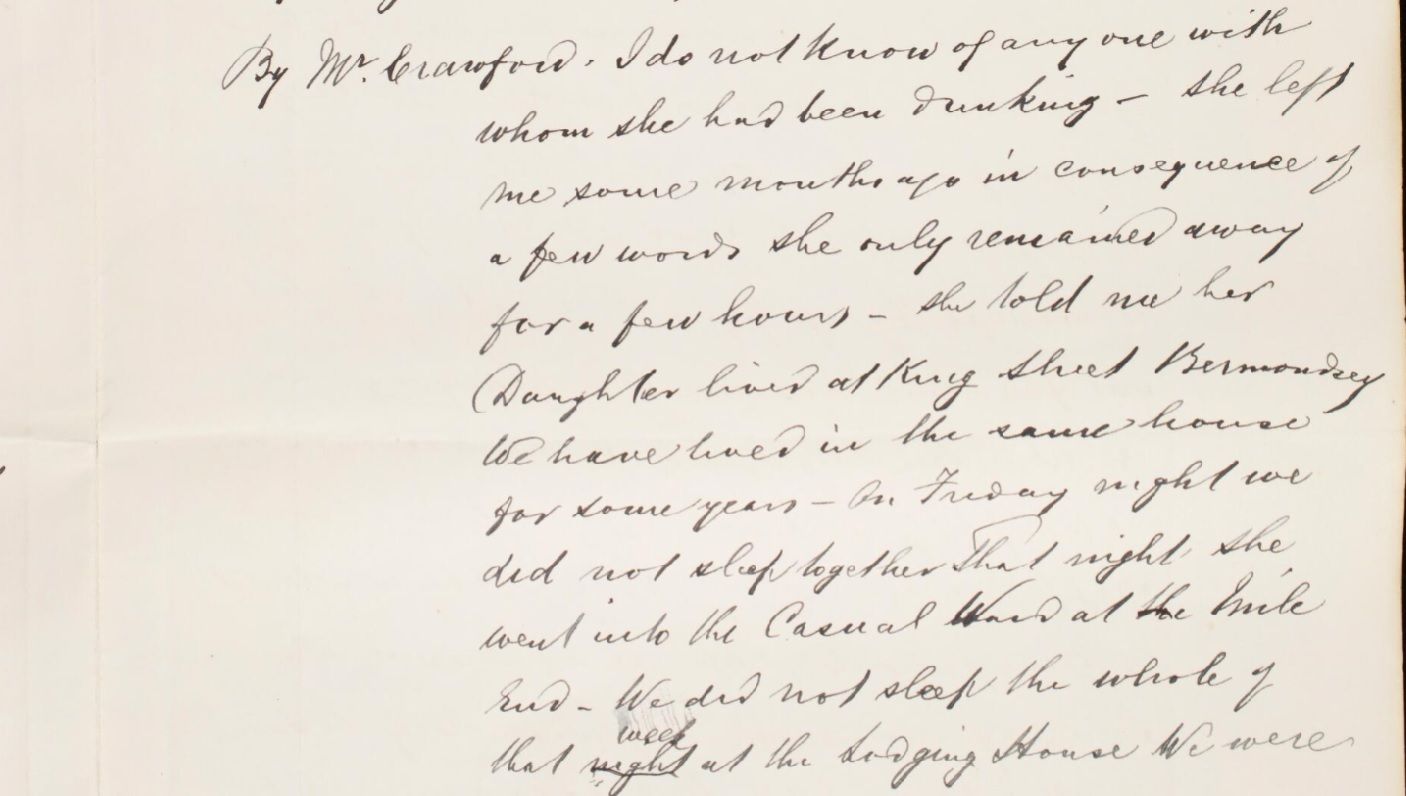 By Mr. Crawford. I do not know of any one with
whom she had been drinking – she left
me some months ago in consequence of
a few words she only remained away
for a few hours – she told me her
Daughter lived at King Street Bermondsey
We have lived in the same house
for some years – On Friday night we
did not sleep together That night she
went into the Casual Ward at the Mile
End – We did not sleep the whole of
week
that night at the Lodging House We were